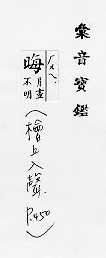 彙音寶鑑
ㄏㄨㄟˋ
晦
月盡
不明
(檜上入聲 P.450)